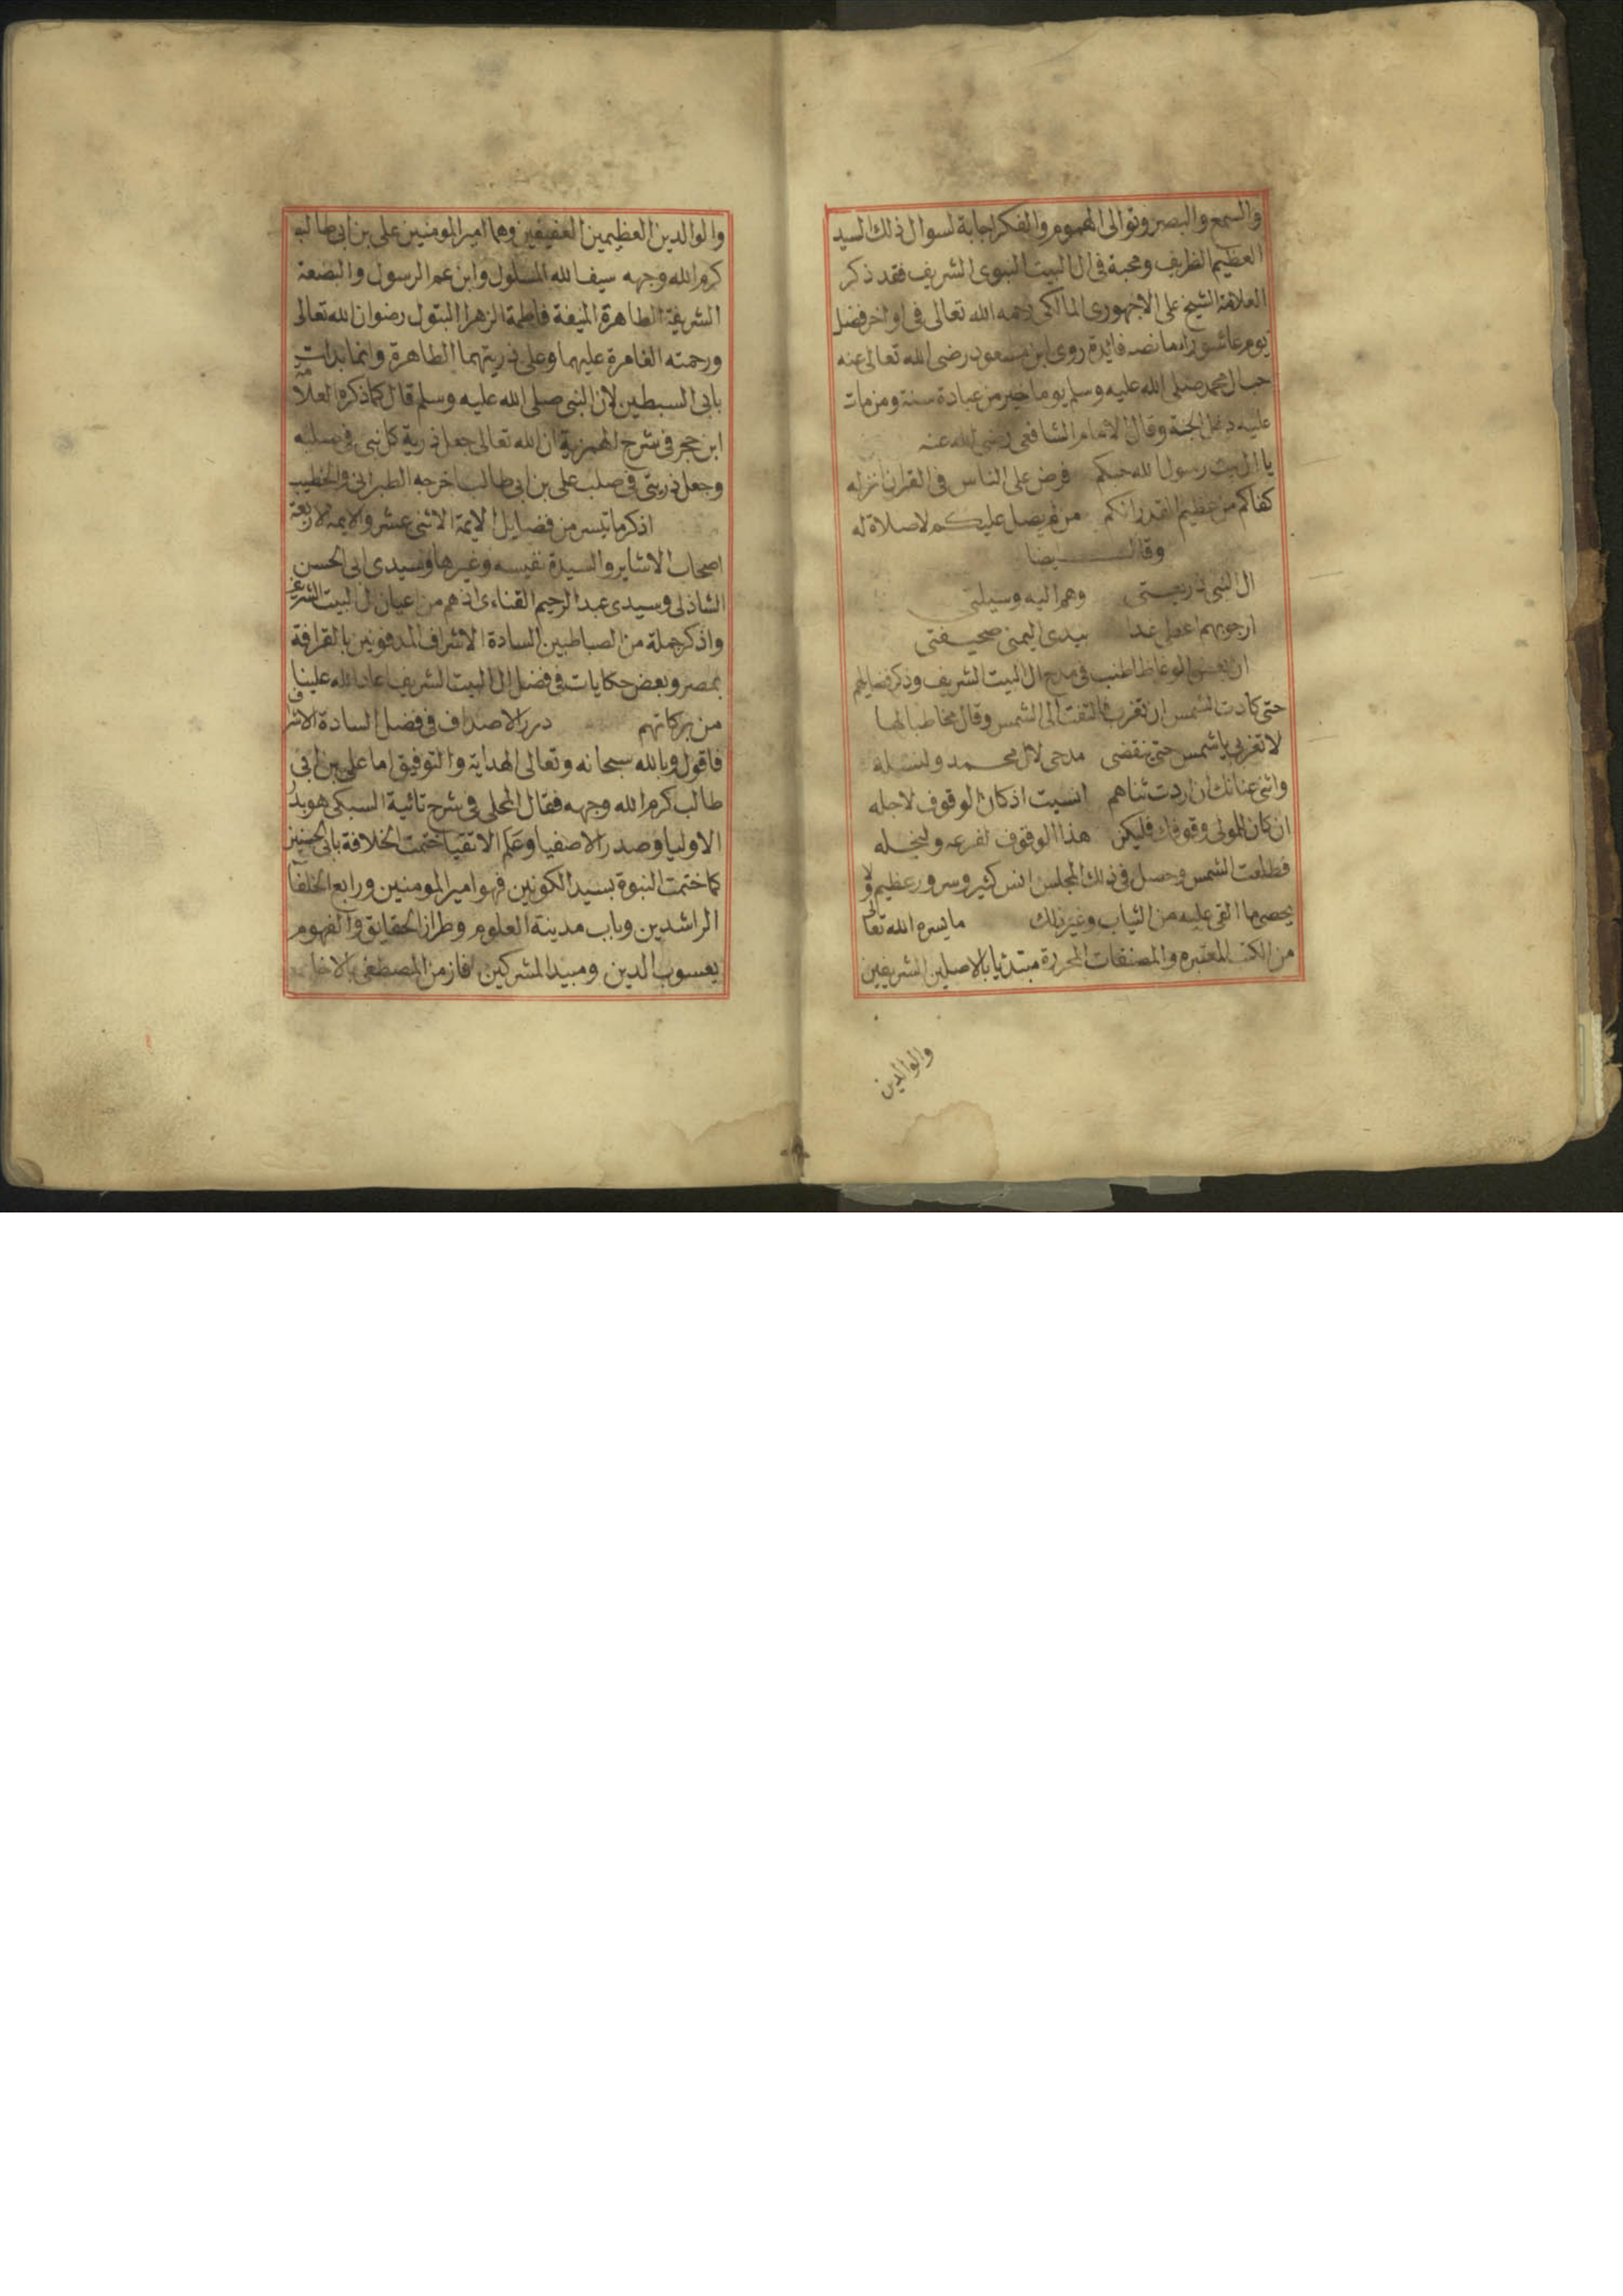 والسمع والبصر وتوالى الهموم والفكر اجابة لسوال ذلك السيد
العظيم الظريف ومحبة فى ال البيت النبوى الشريف فقد ذكر
العلامة الشيخ على الاجهورى المالكى رحمه الله تعالى فى اواخر فضل
يوم عاشورا ما نصه فايدة روى ابن مسعود رضى الله تعالى عنه
حب ال محمد صلى الله عليه وسلم يوما خير من عبادة سنة ومن مات
عليه دخل الجنة وقال الامام الشافعى رضى الله عنه
يا ال بيت رسول الله حبكم فرض على الناس فى القران انزله
كفاكم من عظيم القدر انكم من لم يصل عليكم لا صلاة له
وقال ايضا
ال النبى ذريعتى وهم اليه وسيلتى
ارجو بهم اعطى غدا بيدى اليمنى صحيفتى
ان بعض الوعاظ اطنب فى مدح ال البيت الشريف وذكر فضايلهم
حتى كادت الشمس ان تغرب فالتفت الى الشمس وقال مخاطبا لها
لا تغربى يا شمس حتى ينقضى مدحى لال محمد ولنسله
واثنى عنانك ان اردت ثناهم انسيت اذ كان الوقوف لاجله
ان كان للمولى وقوفك فليكن هذا الوقوف لفرعه ولنجله
فطلعت الشمس وحصل فى ذلك المجلس انس كثير وسرور عظيم ولا
يحصى ما القى عليه من الثياب وغير ذلك ما يسره الله تعالى
من الكتب المعتبره والمصنفات المحررة مبتدئا بالاصلين الشريفين
والوالدين
والوالدين العظيمين العفيفين وهما امير المومنين على بن ابى طالب
كرم الله وجهه سيف الله المسلول وابن عم الرسول والبضعة
الشريفة الطاهرة المنيفة فاطمة الزهرا البتول رضوان الله تعالى
ورحمته الغامرة عليهما وعلى ذريتهما الطاهرة وانما بدات
بابى السبطين لان النبى صلى الله عليه وسلم قال كما ذكره العلامة
ابن حجر فى شرح الهمزية ان الله تعالى جعل ذرية كل نبى فى صلبه
وجعل ذريتى فى صلب على بن ابى طالب اخرجه الطبرانى والخطيب
اذكر ما تيسر من فضايل الايمة الاثنى عشر والايمة الاربعة
اصحاب الاشاير والسيدة نفيسه وغيرها وسيدى ابى الحسن
الشاذلى وسيدى عبد الرحيم القناءى اذ هم من اعيان ال البيت الشريف
واذكر جملة من الصباطبين السادة الاشراف المدفونين بالقرافة
بمصر وبعض حكايات فى فضل ال البيت الشريف اعاد الله علينا
من بركاتهم درر الاصداف فى فضل السادة الاشراف
فاقول وبالله سبحانه وتعالى الهداية والتوفيق اما على بن ابى
طالب كرم الله وجهه فقال المحلى فى شرح تائية السبكى هو بدر
الاوليا وصدر الاصفيا وعلم الاتقيا ختمت الخلافة بابى الحسنين
كما ختمت النبوة بسيد الكونين فهو امير المومنين ورابع الخلفا
الراشدين وباب مدينة العلوم وطراز الحقايق والفهوم
يعسوب الدين ومبيد المشركين فاز من المصطفى بالاخا